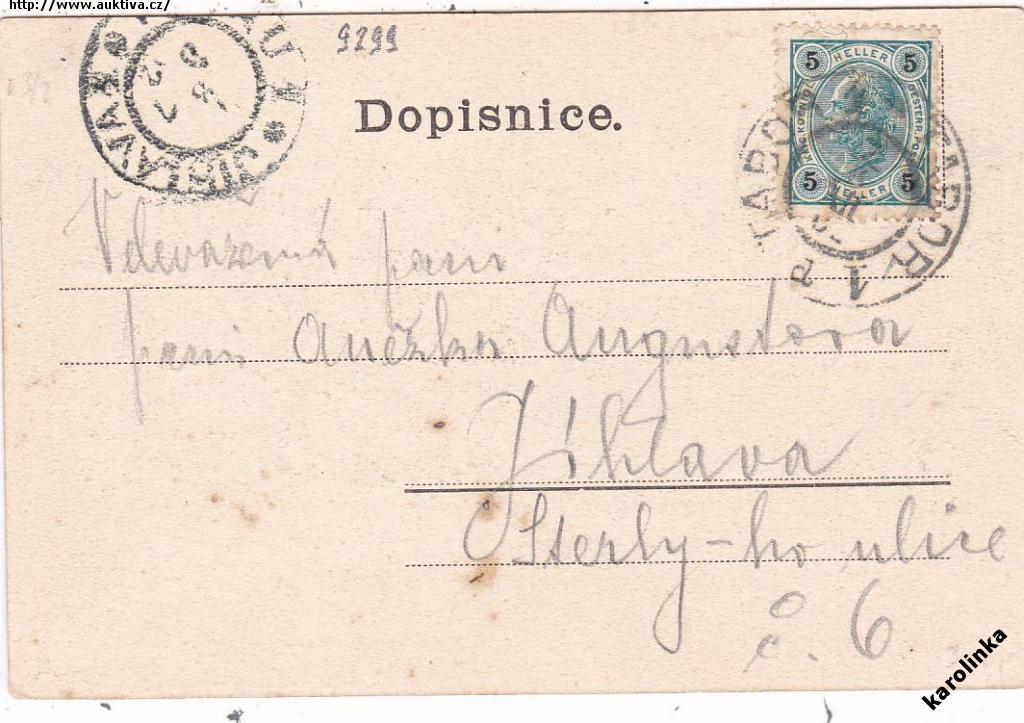 http://www.auktiva.cz/
9299
Dopisnice.
5 HELLER 5
5 HELLER 5
TABOR
TABOR
1
JIHLAVA
Vdevažená paní
paní Aučzka Augustova
Jihlava
Sterly-ho ulice
č. 6
karolinka